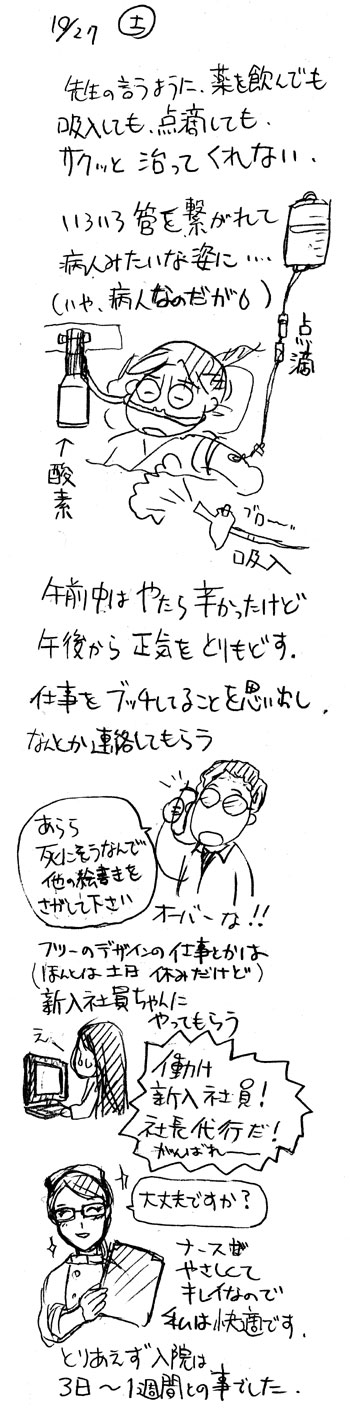 10/27 土
先生の言うように、薬を飲んでも
吸入しても、点滴しても、
サクッと 治ってくれない、
いろいろ管を繋がれて
病人みたいな姿に・・・・
(いや、病人なのだが6)
点滴
↑酸素
ブロ〜〜
吸入
午前中は やたら辛かったけど
午後から 正気を とりもどす.
仕事を ブッチしてることを思い出し、
なんとか連絡してもらう
あらら
死にそうなんで
他の絵書きを
さがして下さい
オーバーな!!
フツーのデザインの仕事とかは
(ほんとは土日 休みだけど)
新入社員ちゃんに
やってもらう
え、
働け
新入社員!
社長代行だ!
がんばれ――
大丈夫ですか?
ナースが
やさしくて
キレイなので
私は快適です.
とりあえず入院は
3日〜1週間との事でした.